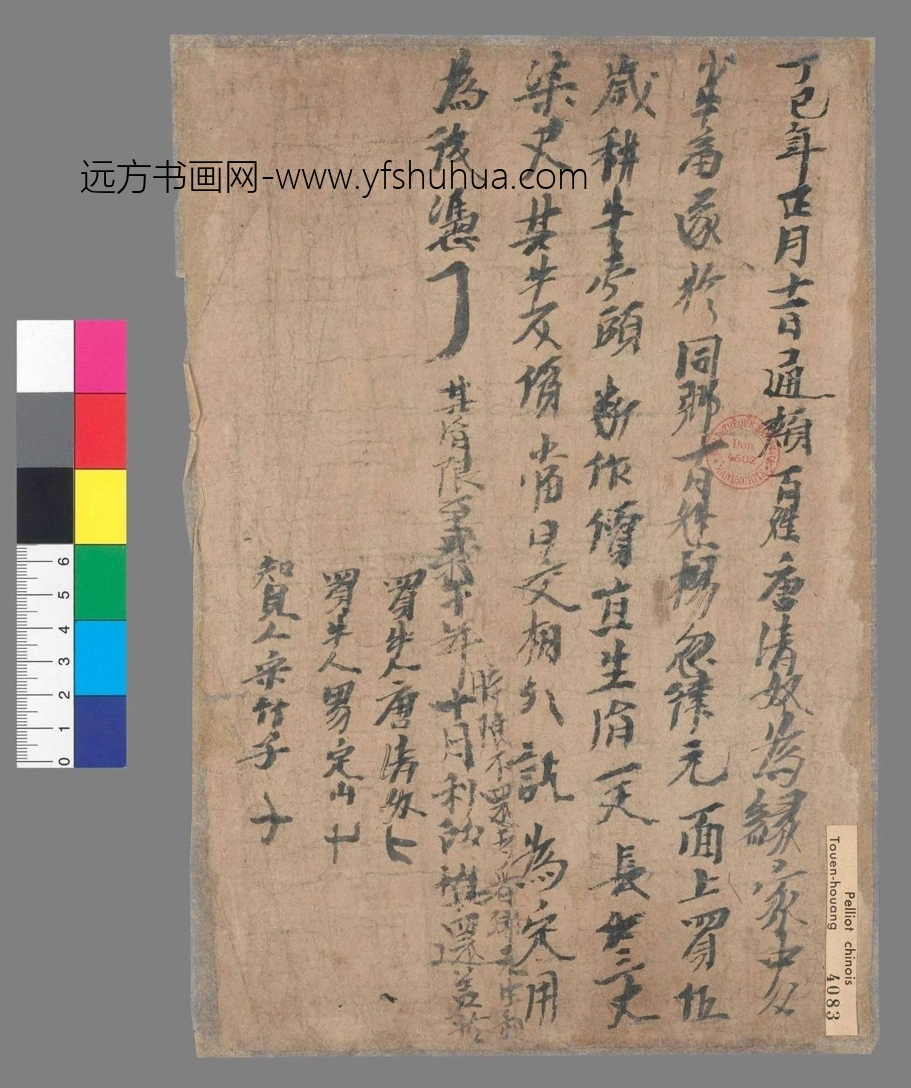 丁巳年正月十一日通頰百姓唐清奴為緣家中欠
少牛畜遂於同鄉百姓楊忽律元面上買伍
歲耕牛壹頭斷作價直生絹一疋長三丈
柒尺其牛及絹當日交相分訖為定用
為後憑
其絹限至戊午年十月利頭填還若於
時限不還者看鄉元生利
買牛人唐清奴
買牛人男定山
知見人宋竹子
Pelliot chinois
Touen-houang
4083
Don
4502
MANUSCRITS
远方书画网-www.yfshuhua.com
0 1 2 3 4 5 6